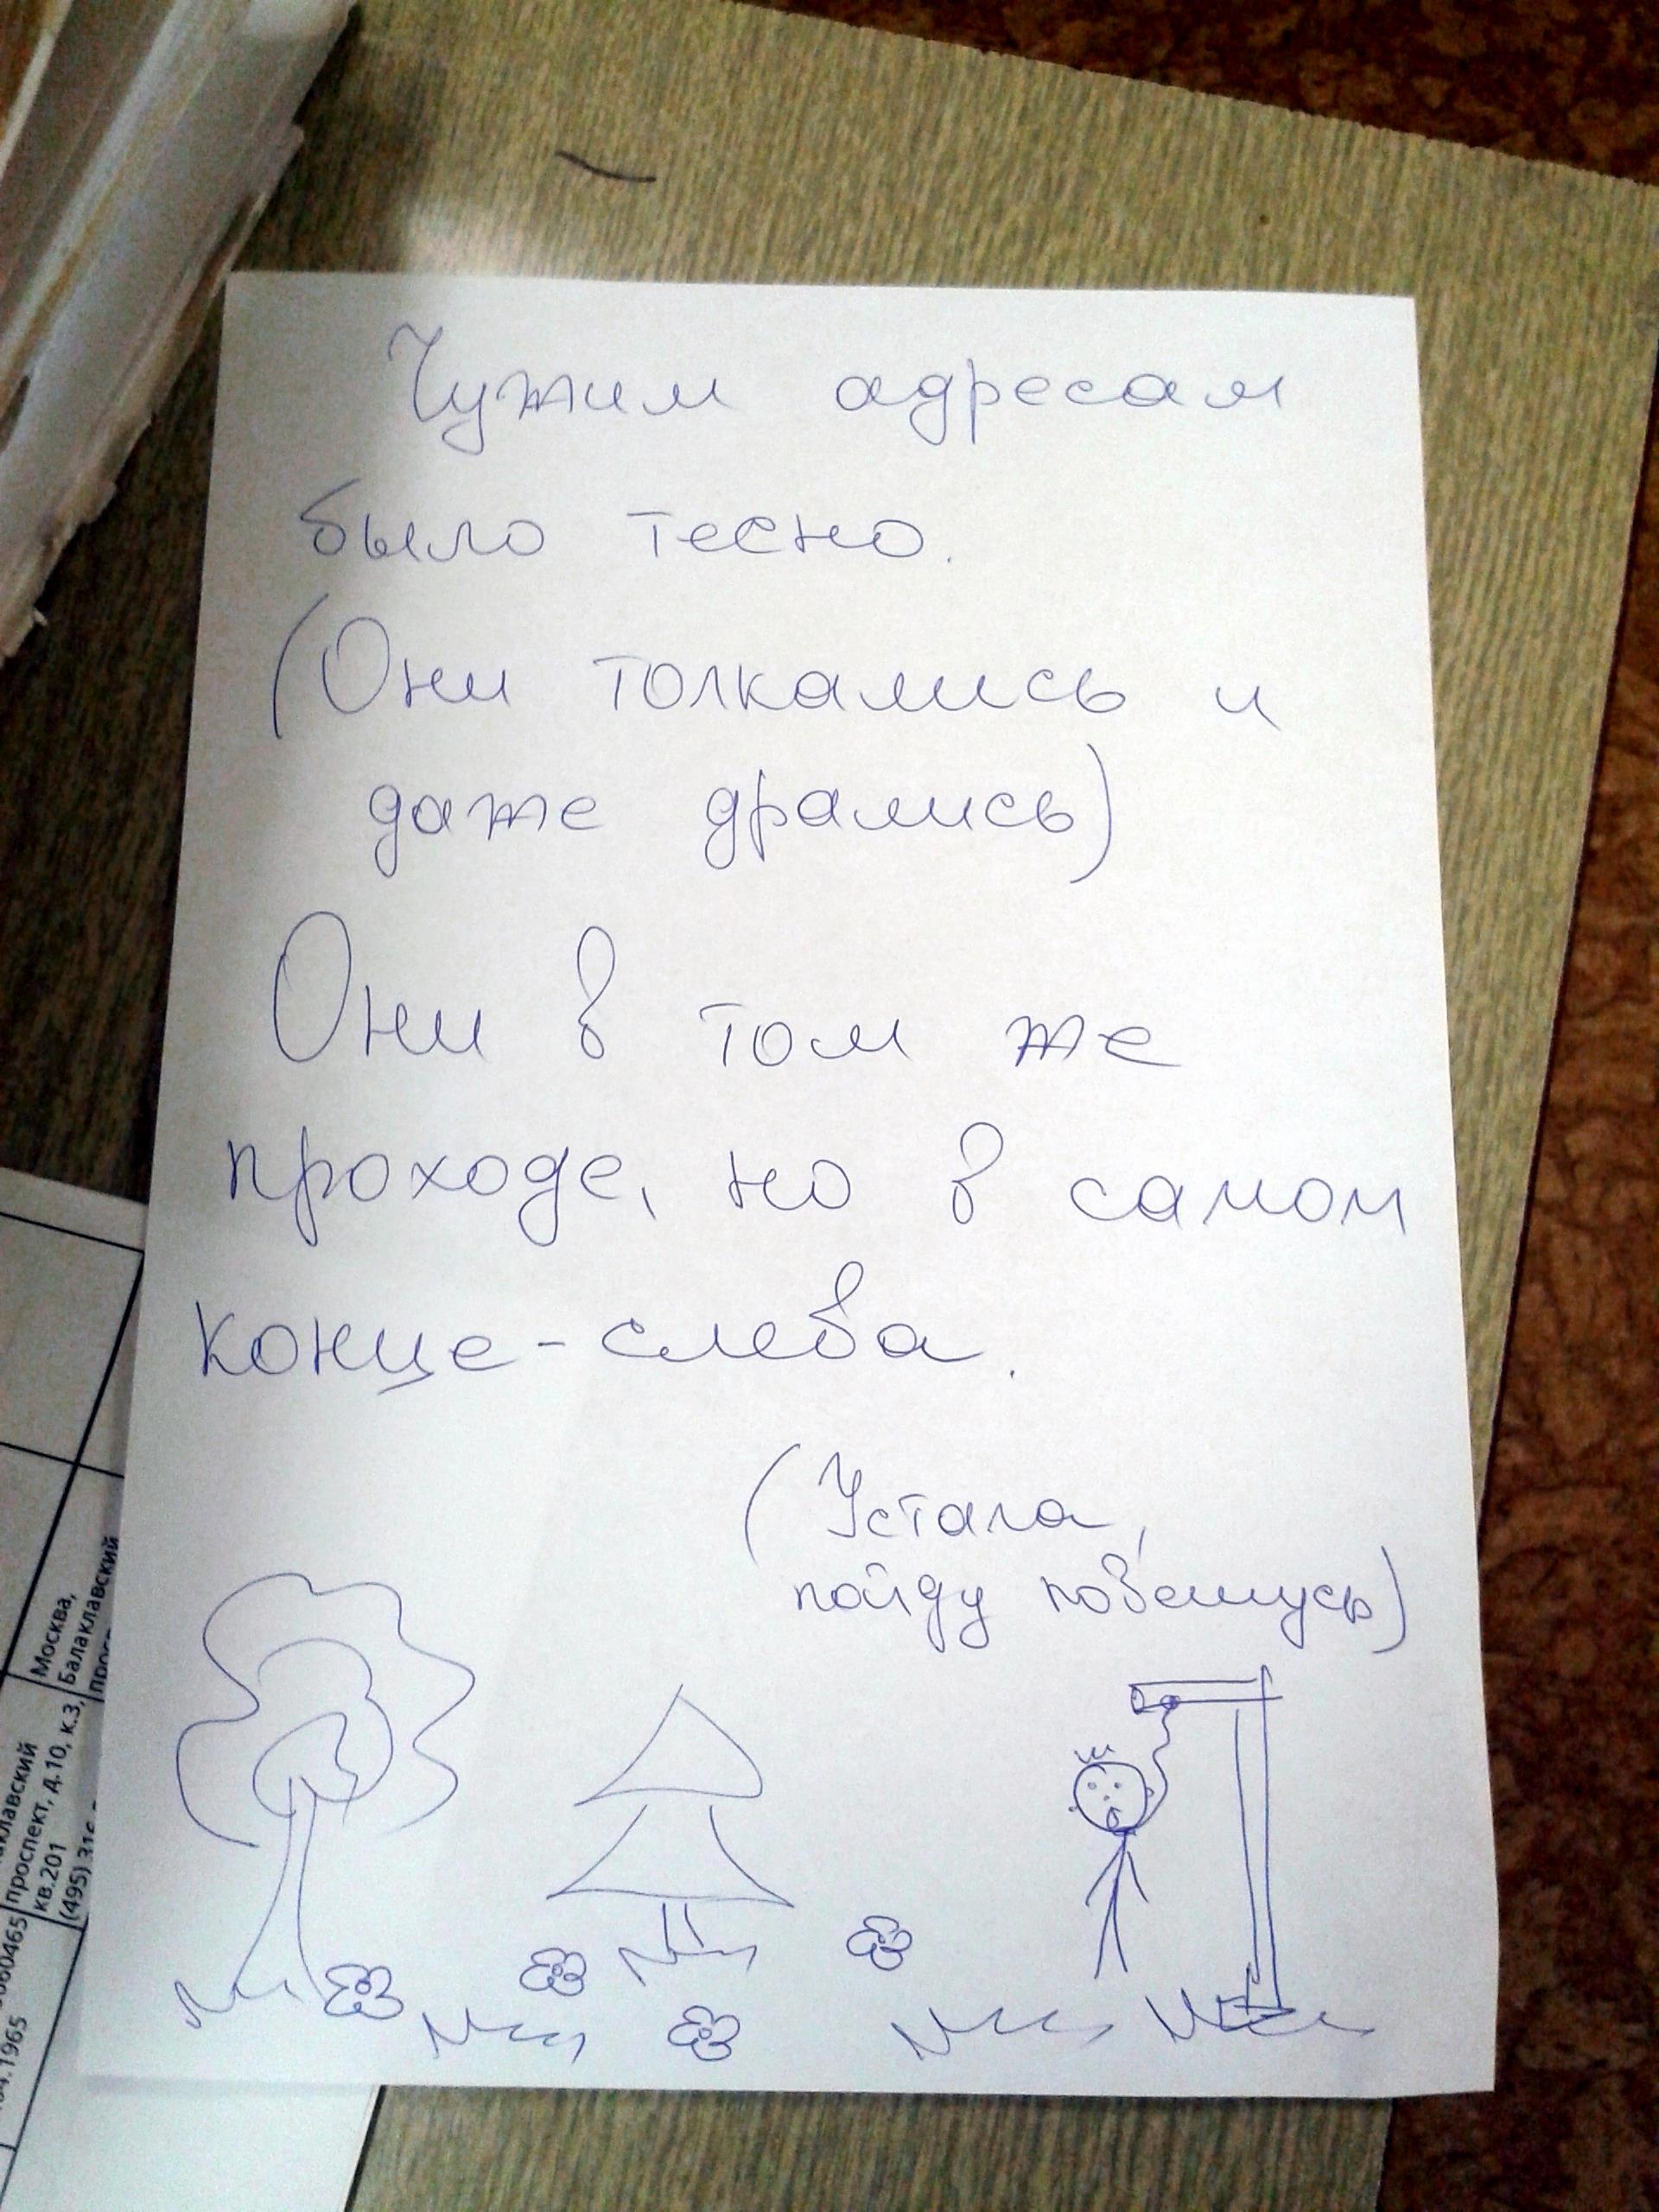 Чужим адресам
было тесно.
(Они толкались и
даже дрались)
Они в том же
проходе, но в самом
конце-слева.
(Устала,
пойду повешусь)
Москва,
Балаклавский
проспект, д.10, к.3,
кв.201
(495)
060465
.1965